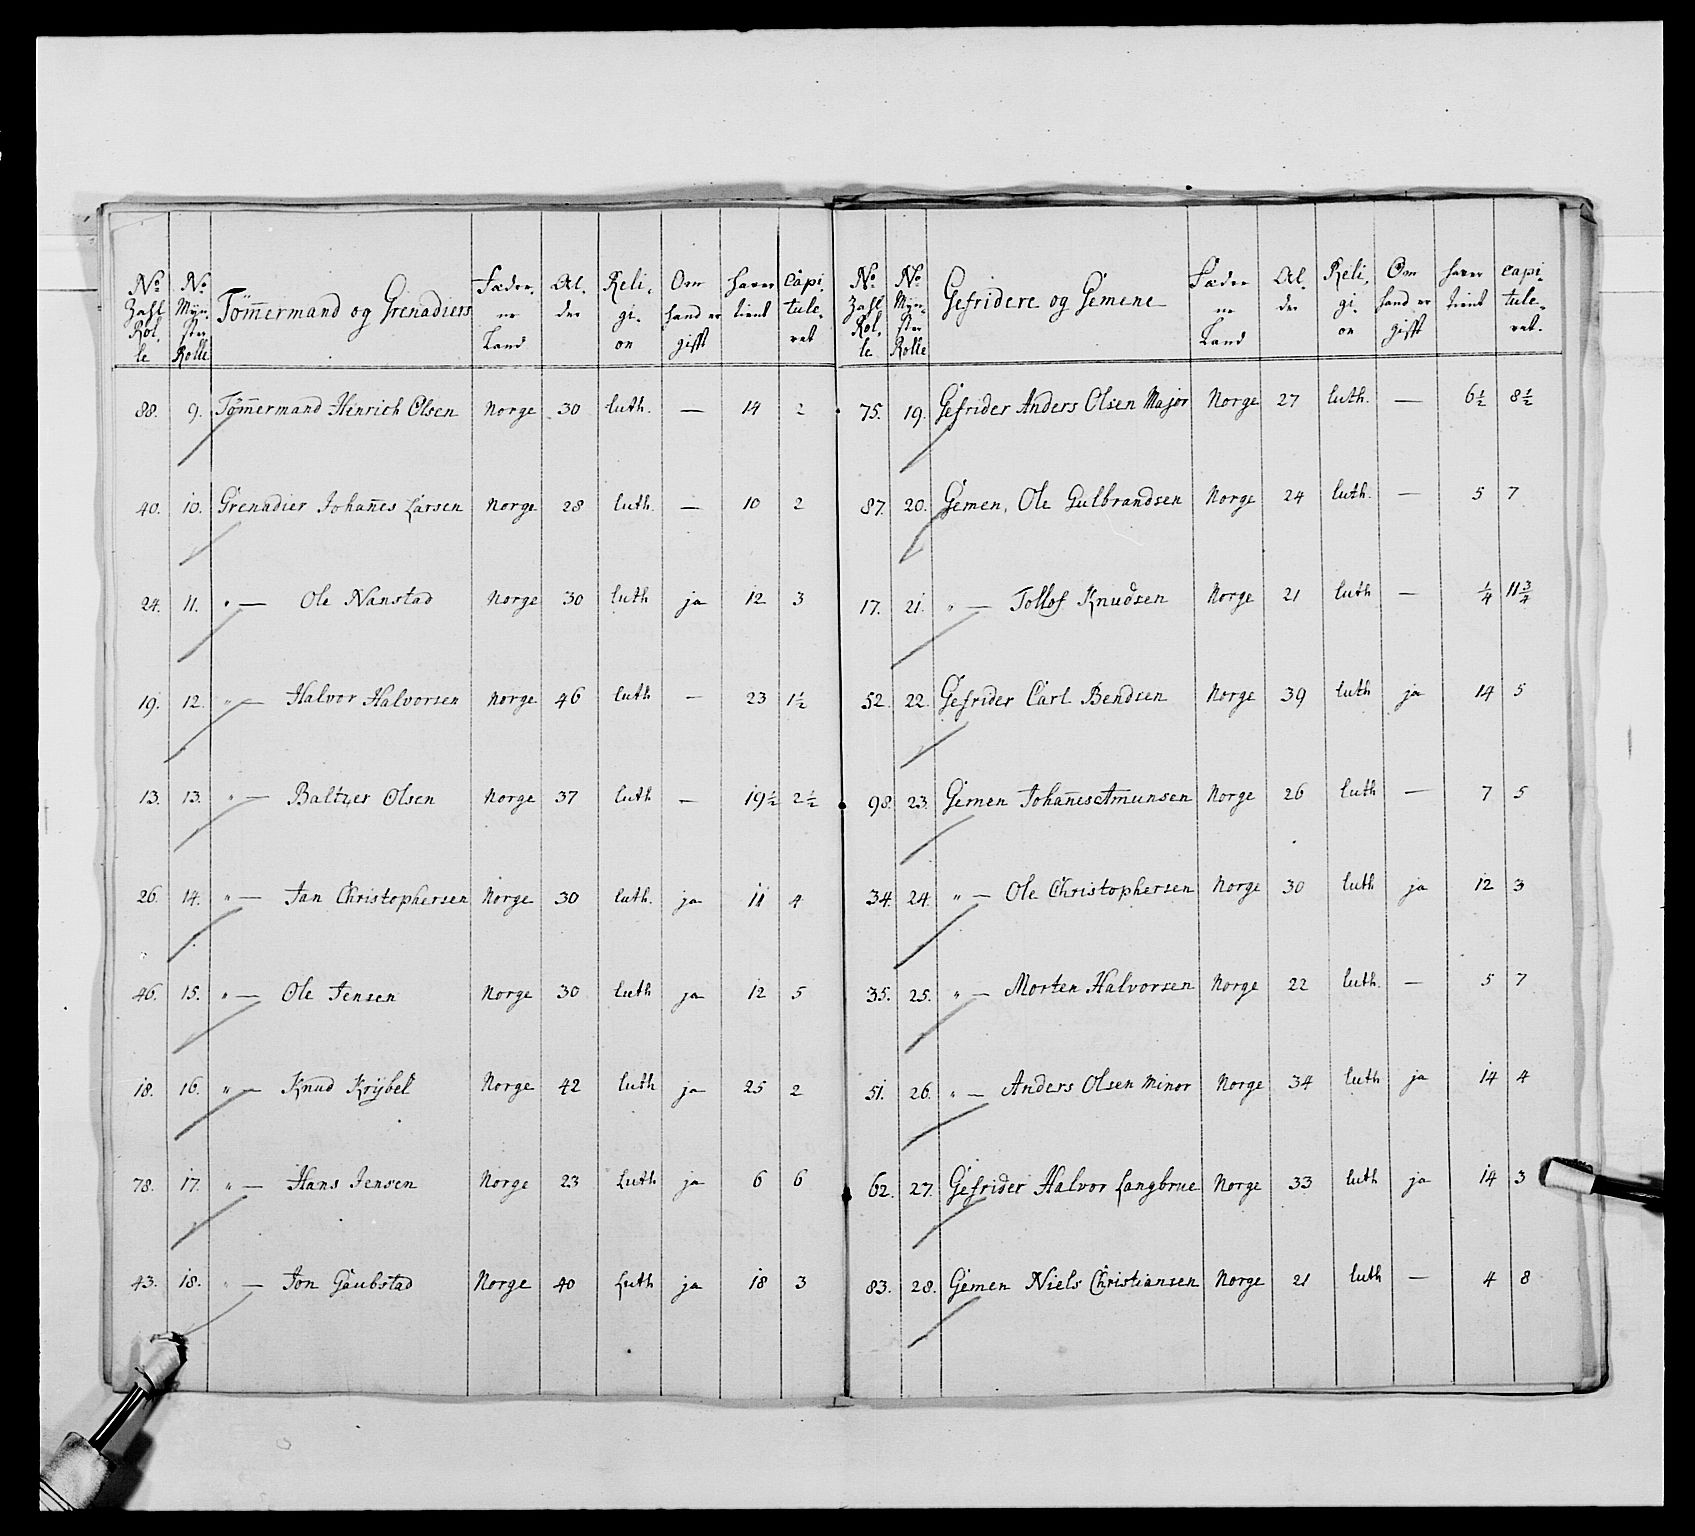 No Zahl Rolle | No Mynster Rolle | Tømmermand og Grenadiers | Fæderne Land | Alder | Religion | Om hand er gifft | haver tient | Capituleret
88. | 9. | Tom̅ermand Henrich Olsen | Norge | 30 | luth. | — | 14 | 2
40. | 10. | Grenadier Johan̅es Larsen | Norge | 28 | luth. | — | 10 | 2
24. | 11. | " — Ole Nanstad | Norge | 30 | luth | ja | 12 | 3
19. | 12. | " — Halvor Halvorsen | Norge | 46 | luth | — | 23 | 1½
13. | 13. | " — Baltzer Olsen | Norge | 37 | luth | — | 19½ | 2½
26. | 14. | " — Jan Christophersen | Norge | 30 | luth. | ja | 11 | 4
46. | 15. | " — Ole Jensen | Norge | 30 | luth | ja | 12 | 5
18. | 16. | " — Knud Krÿbel | Norge | 42 | luth | ja | 25 | 2
78. | 17. | " — Hans Jensen | Norge | 23 | Luth | ja | 6 | 6
43. | 18. | " — Jon Gaubstad | Norge | 40 | Luth | ja | 18 | 3
No Zahl Rolle | No Mynster Rolle | Gefridere og Gemene | Fæderne Land | Alder | Religion | Om hand er gifft | haver tient | capituleret.
75. | 19. | Gefrider Anders Olsen Major | Norge | 27 | luth. | — | 6½ | 8½
87. | 20. | Gemen, Ole Gulbrandsen | Norge | 24 | luth. | — | 5 | 7
17. | 21. | " — Tollof Knudsen | Norge | 21 | luth | — | ¼ | 11¾
52. | 22. | Gefrider Carl Bendsen | Norge | 39 | luth | ja | 14 | 5
98. | 23. | Gemen Johan̅es Amunsen | Norge | 26 | luth | — | 7 | 5
34. | 24. | " — Ole Christophersen | Norge | 30 | luth | ja | 12 | 3
35. | 25. | " — Morten Halvorsen | Norge | 22 | luth. | — | 5 | 7
51. | 26. | " — Anders Olsen Minor | Norge | 34 | luth | ja | 14 | 4
62. | 27. | Gefrider Halvor Langbrue | Norge | 33 | luth | ja | 14 | 3
83. | 28. | Gemen Niels Christiansen | Norge | 21 | luth | — | 4 | 8